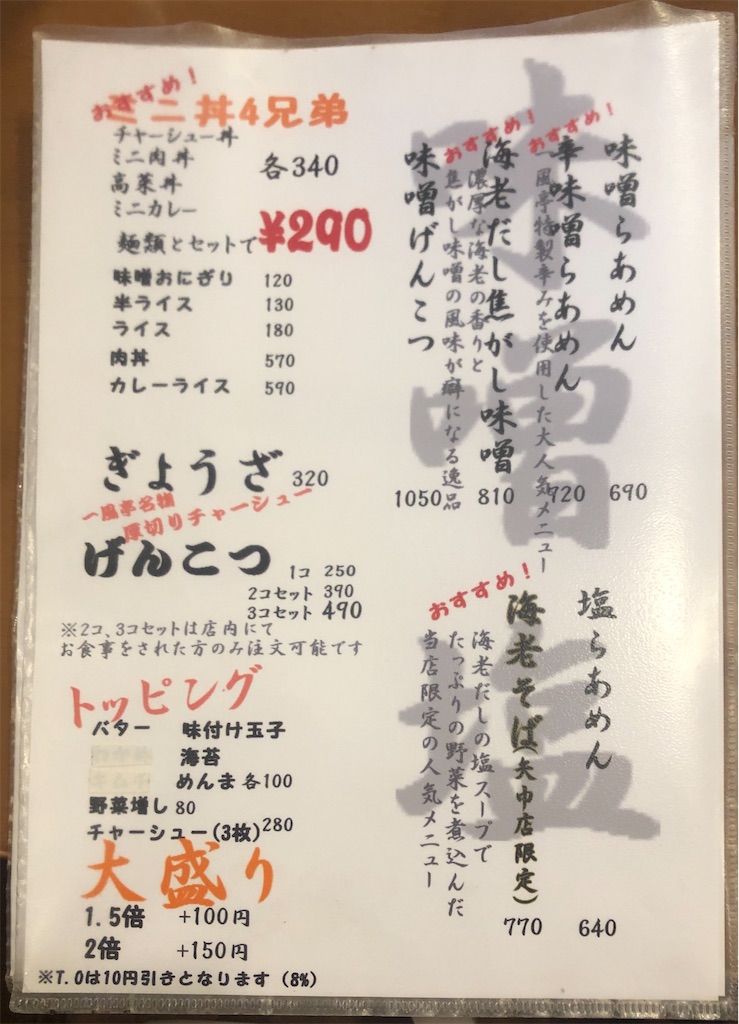 味噌
味噌らあめん
690
おすすめ!
辛味噌らあめん
一風亭特製辛みを使用した大人気メニュー
720
おすすめ!
海老だし焦がし味噌
濃厚な海老の香りと
焦がし味噌の風味が癖になる逸品
810
味噌げんこつ
1050
塩
塩らあめん
640
おすすめ!
海老そば(矢巾店限定)
海老だしの塩スープで
たっぷりの野菜を煮込んだ
当店限定の人気メニュー
770
おすすめ!
ミニ丼4兄弟
チャーシュー丼
ミニ肉丼
高菜丼
ミニカレー
各340
麺類とセットで¥290
味噌おにぎり 120
半ライス 130
ライス 180
肉丼 570
カレーライス 590
ぎょうざ 320
一風亭名物
厚切りチャーシュー
げんこつ 1コ 250
2コセット 390
3コセット 490
※2コ、3コセットは店内にて
お食事をされた方のみ注文可能です
トッピング
バター 味付け玉子
海苔
めんま 各100
野菜増し 80
チャーシュー(3枚) 280
大盛り
1.5倍 +100円
2倍 +150円
※T.Oは10円引きとなります (8%)